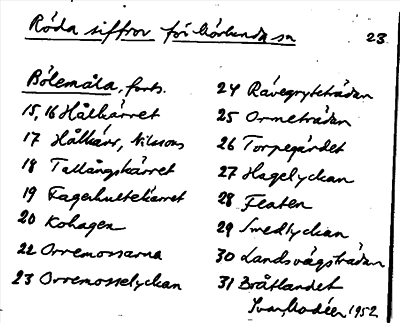 Röda siffror för Hörlunda sn 23
Bölemåla, forts.
15, 16 Hålkärret
17 Hålkärr, Nilssons
18 Tallångskärret
19 Fagerhultekärret
20 Kohagen
22 Orremossarna
23 Orremosselyckan
24 Rävegryteträdan
25 Ormeträdan
26 Torpegärdet
27 Hagelyckan
28 Flaten
29 Smedlyckan
30 Landsvägsträdan
31 Bråtlandet
1952